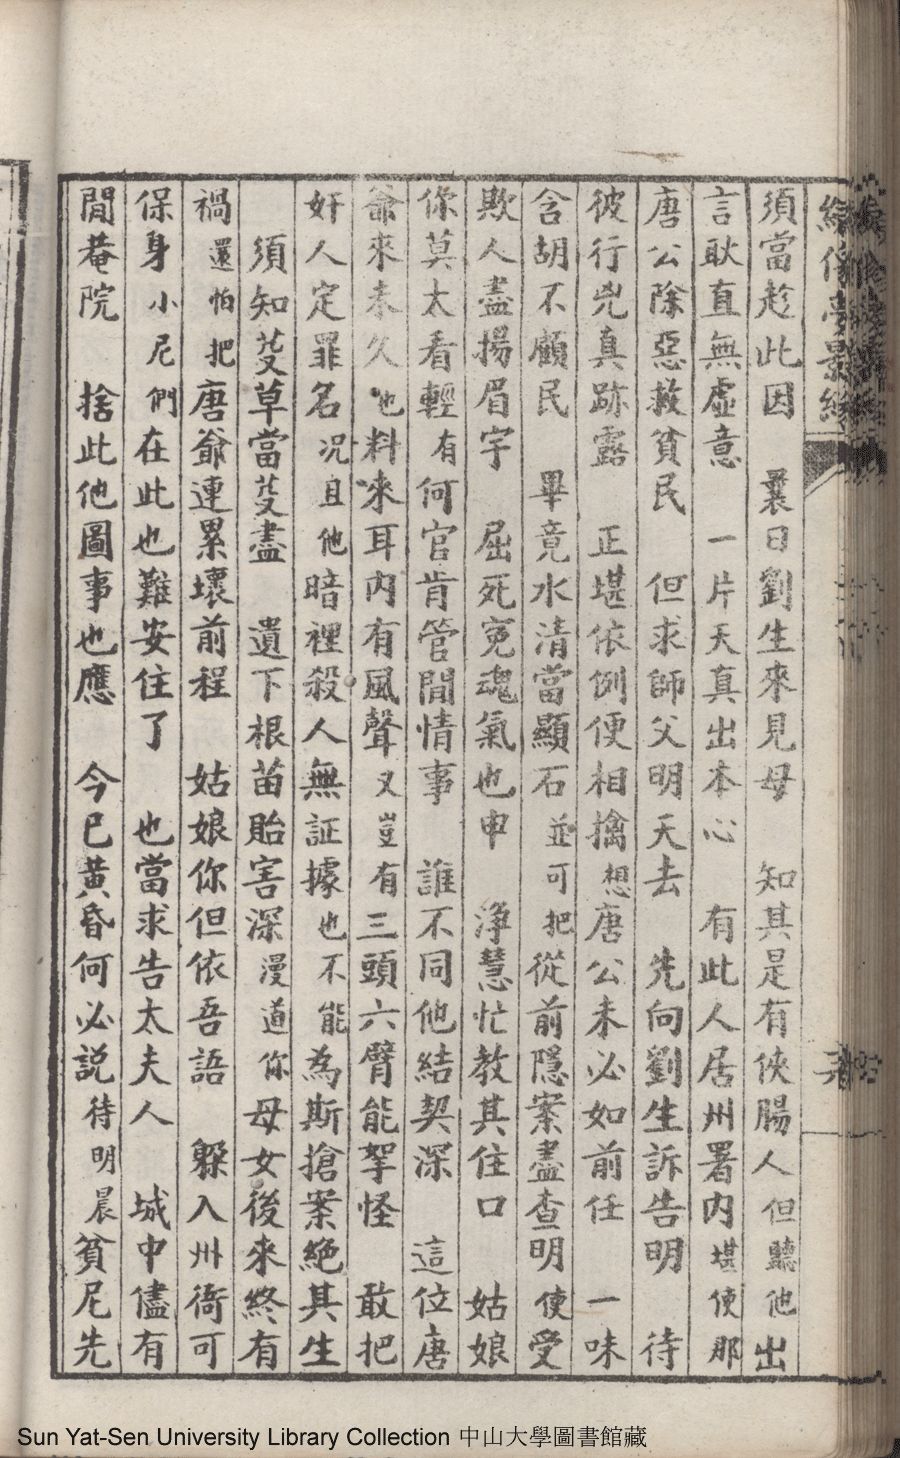 須當趁此因　曩日劉生來見母　知其是有俠腸人但聽他出
言耿直無虛意　一片天真出本心　有此人居州署內堪使那
唐公除惡救貧民　但求師父明天去　先向劉生訴告明　待
彼行兇真跡露　正堪依例便相擒想唐公未必如前任　一味
含胡不顧民　畢竟水清當顯石並可把從前隱案盡查明使受
欺人盡揚眉宇　屈死冤魂氣也申　淨慧忙教其住口　姑娘
你莫太看輕有何官肯管閒情事　誰不同他結契深　這位唐
爺來未久也料來耳內有風聲又豈有三頭六臂能拏怪　敢把
奸人定罪名況且他暗裡殺人無証據也不能為斯搶案絕其生
須知芟草當芟盡　遺下根苗貽害深漫道你母女後來終有
禍還怕把唐爺連累壞前程　姑娘你但依吾語　躲入州衙可
保身小尼們在此也難安住了　也當求告太夫人　城中儘有
閒菴院　捨此他圖事也應　今已黃昏何必説待明晨貧尼先
Sun Yat-Sen University Library Collection 中山大學圖書館藏